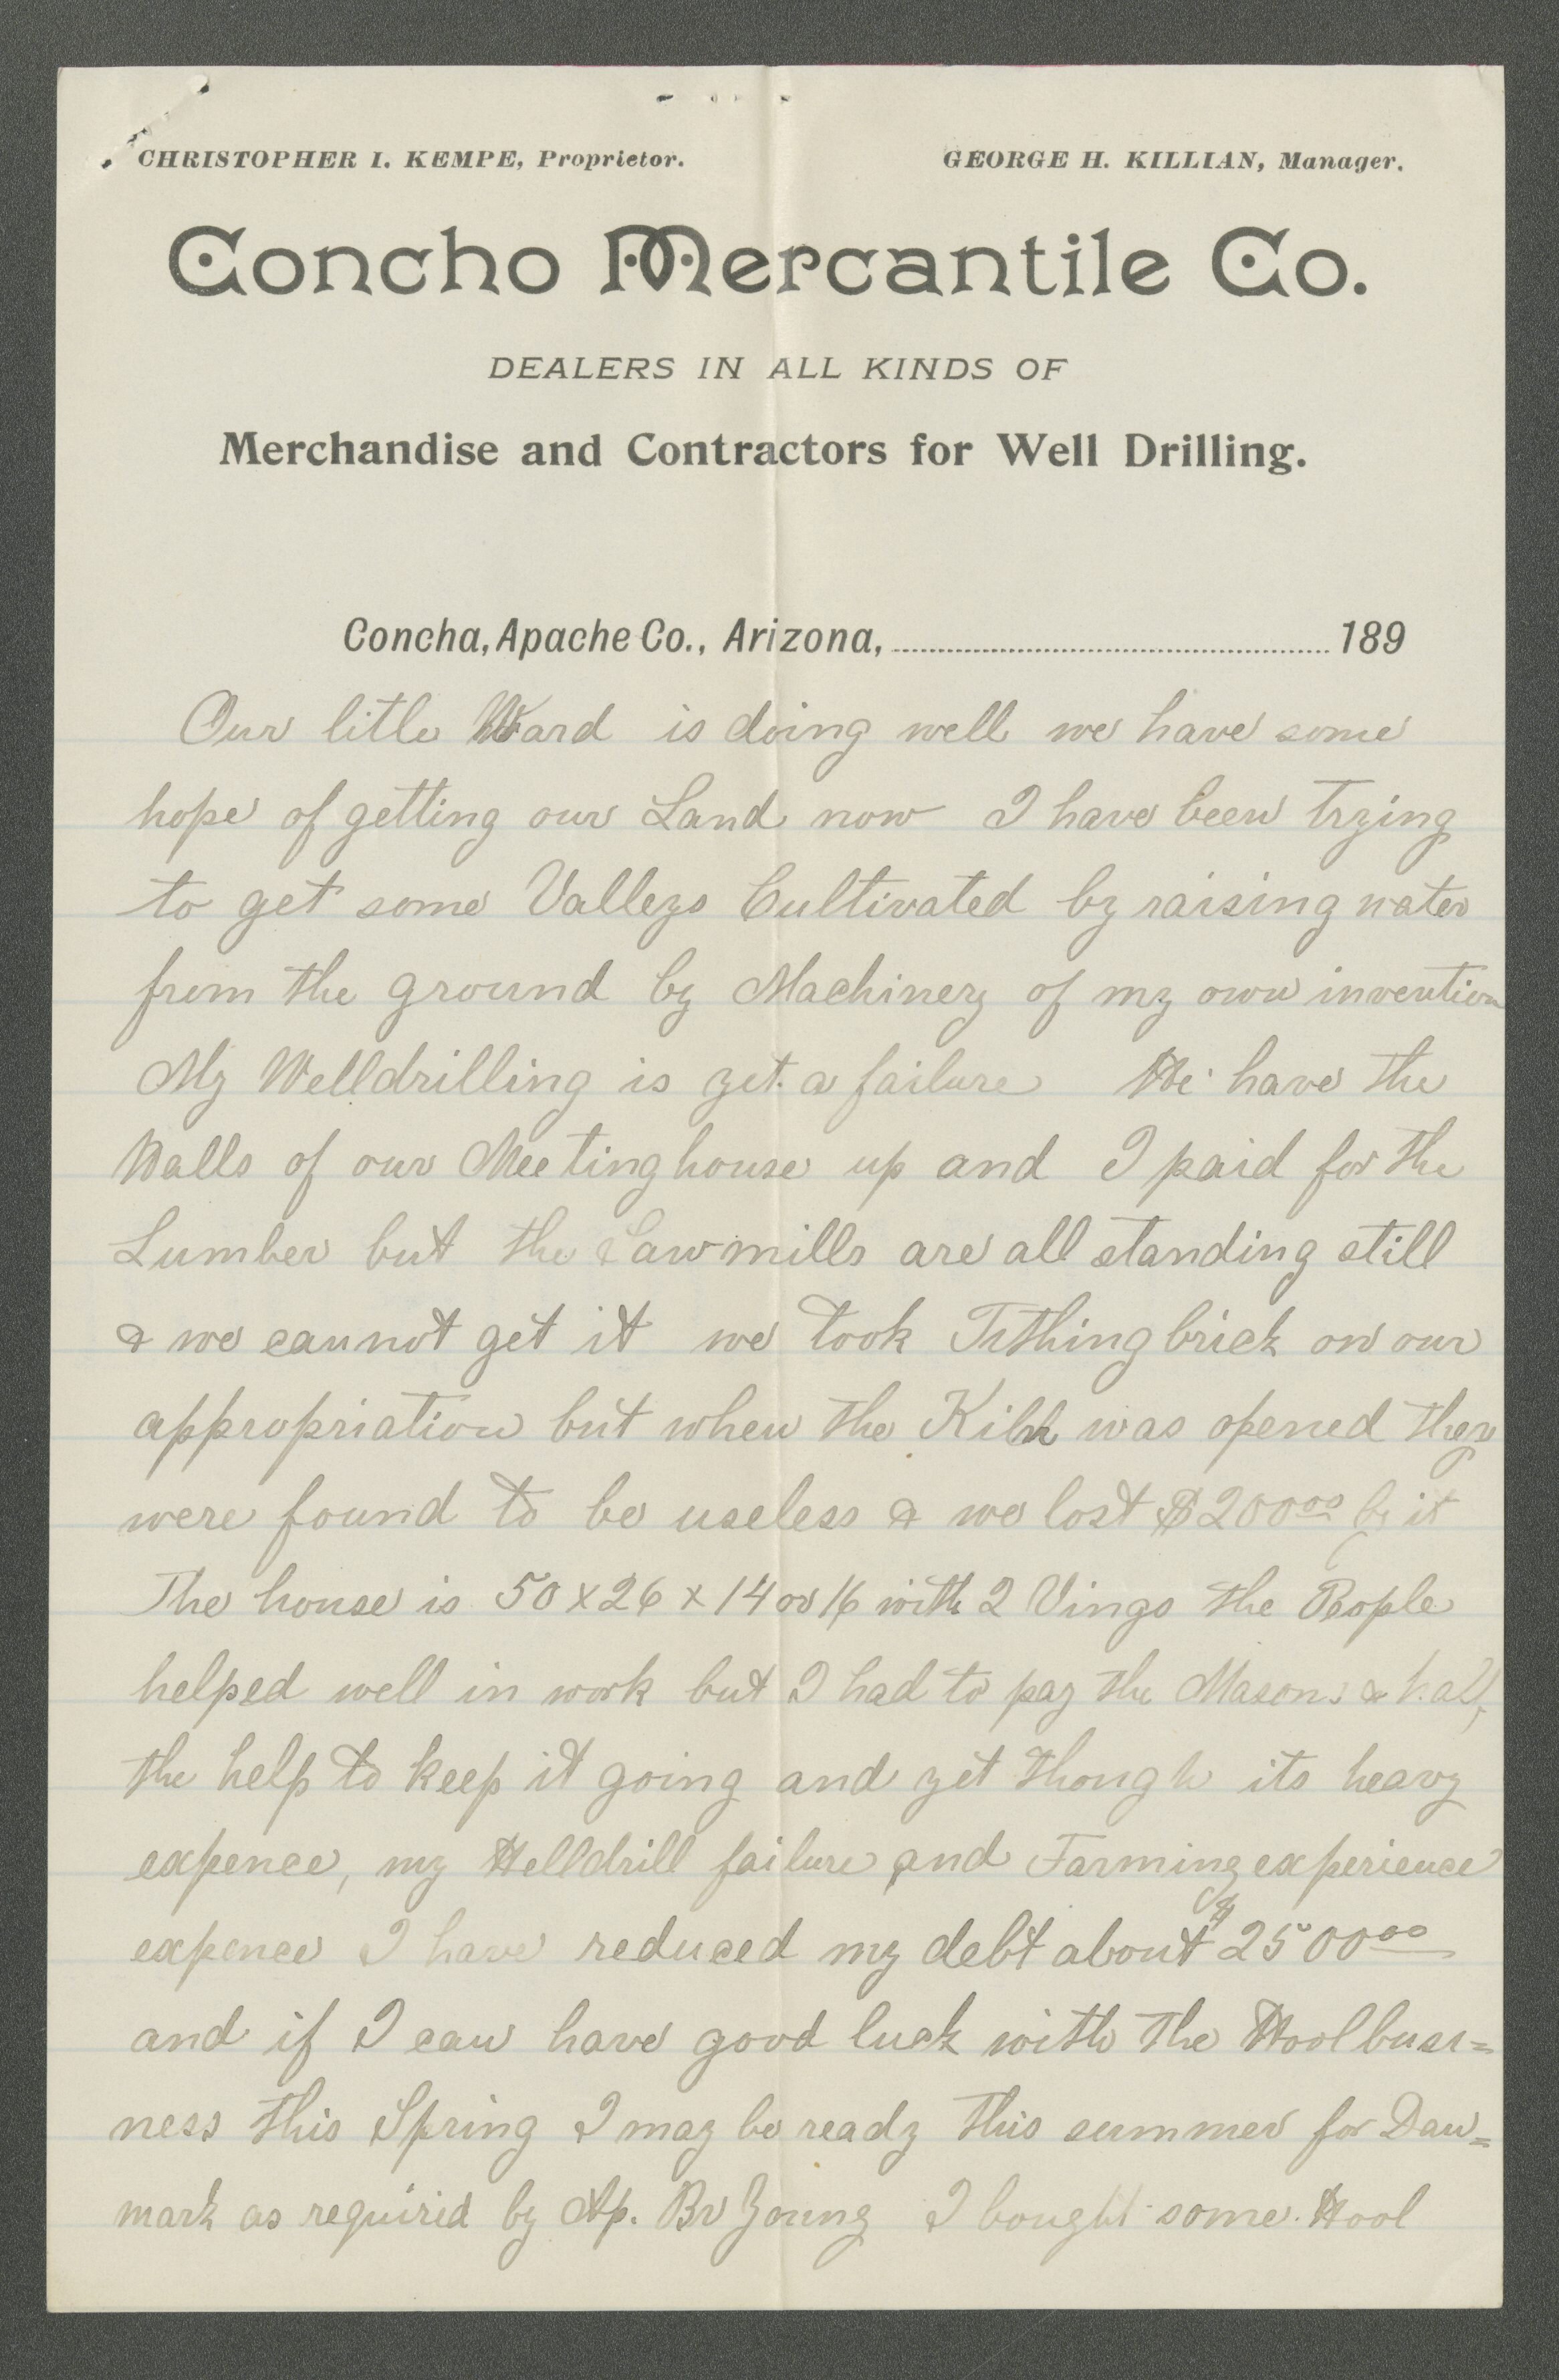 CHRISTOPHER I. KEMPE, Proprietor. GEORGE H. KILLIAN, Manager.
Concho Mercantile Co.
DEALERS IN ALL KINDS OF
Merchandise and Contractors for Well Drilling.
Concha, Apache Co., Arizona, 189
Our litle Ward is doing well we have some
hope of getting our Land now I have been trying
to get some Valleys Cultivated by raising water
from the ground by Machinery of my own invention
My Welldrilling is yet a failure We have the
Walls of our Meetinghouse up and I paid for the
Lumber but the Sawmills are all standing still
& we cannot get it we took Tithing brick on our
appropriation but when the Kiln was opened they
were found to be useless & we lost $200.00 by it
The house is 50 x 26 x 14 or 16 with 2 Vings the People
helped well in work but I had to pay the Masons & half
the help to keep it going and yet though its heavy
expence, my Welldrill failure and Farming experience
expence I have reduced my debt about $2500.00
and if I can have good luck with the Wool busi=
ness this Spring I may be ready this summer for Dan=
mark as requirid by Ap. Br Young I bought some Wool